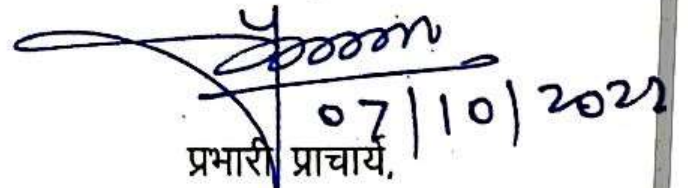 07/10/2022
प्रभारी प्राचार्य,